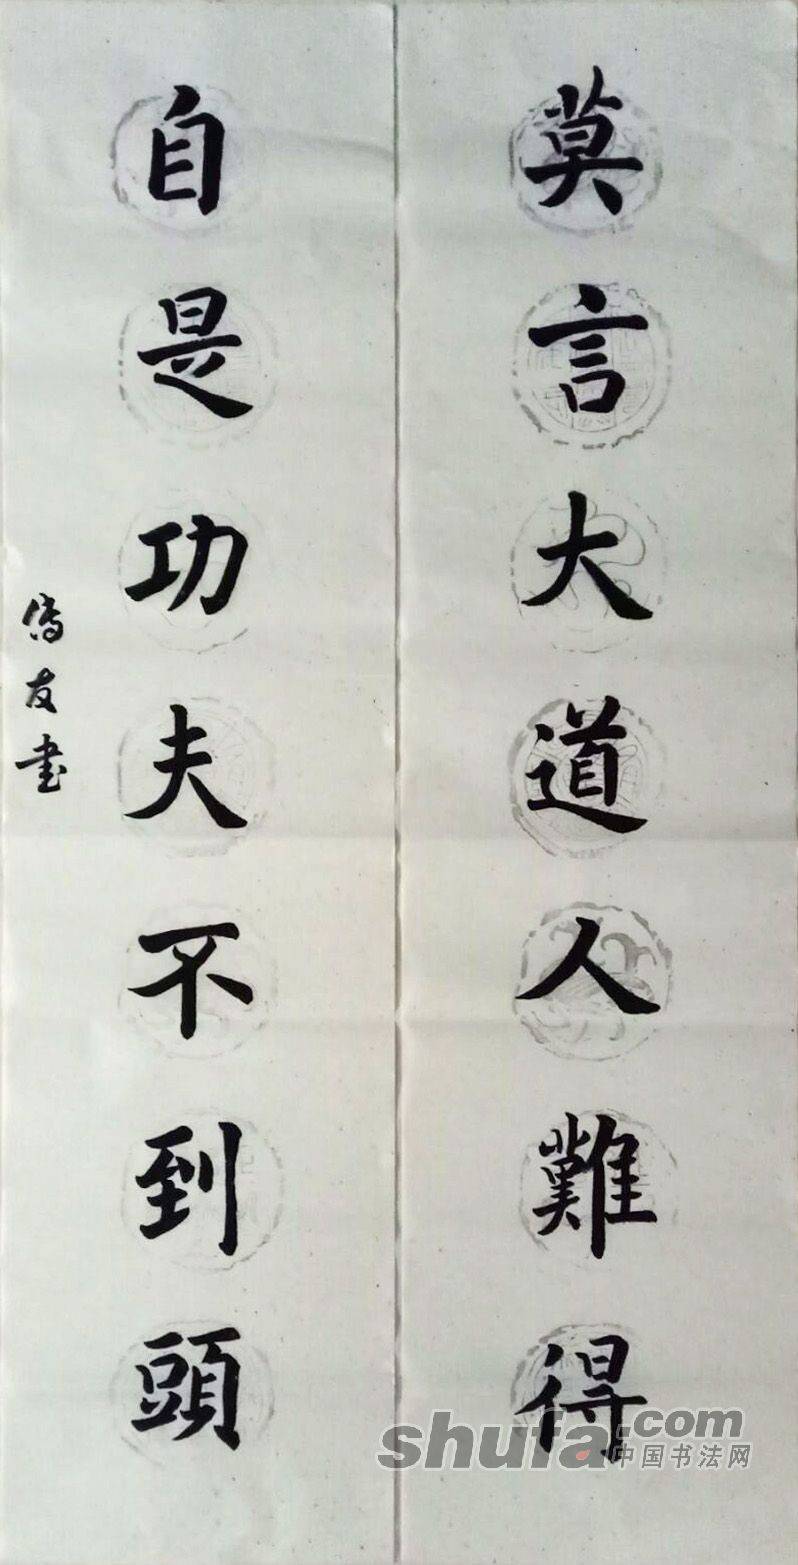 莫言大道人難得
自是功夫不到頭
友書
shufa.com
中国书法网